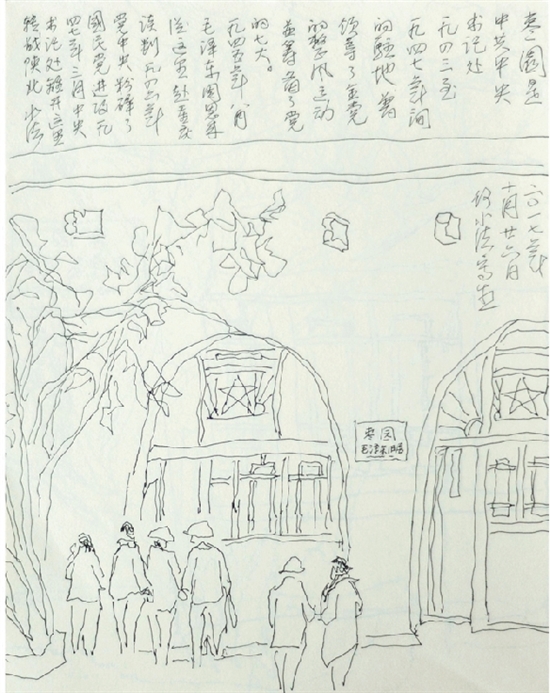 枣园是
中共中央
书记处
一九四三至
一九四七年间
的驻地 曾
领导了全党
的整风运动
并筹备了党
的七大。
一九四五年八月
毛泽东同志等
从这里赴重庆
谈判 一九四六年
党中央粉碎了
国民党进攻 一九
四七年三月中央
书记处离开这里
转战陕北 小法
二〇一七年
十月廿六日
小法写生
枣园
毛泽东旧居